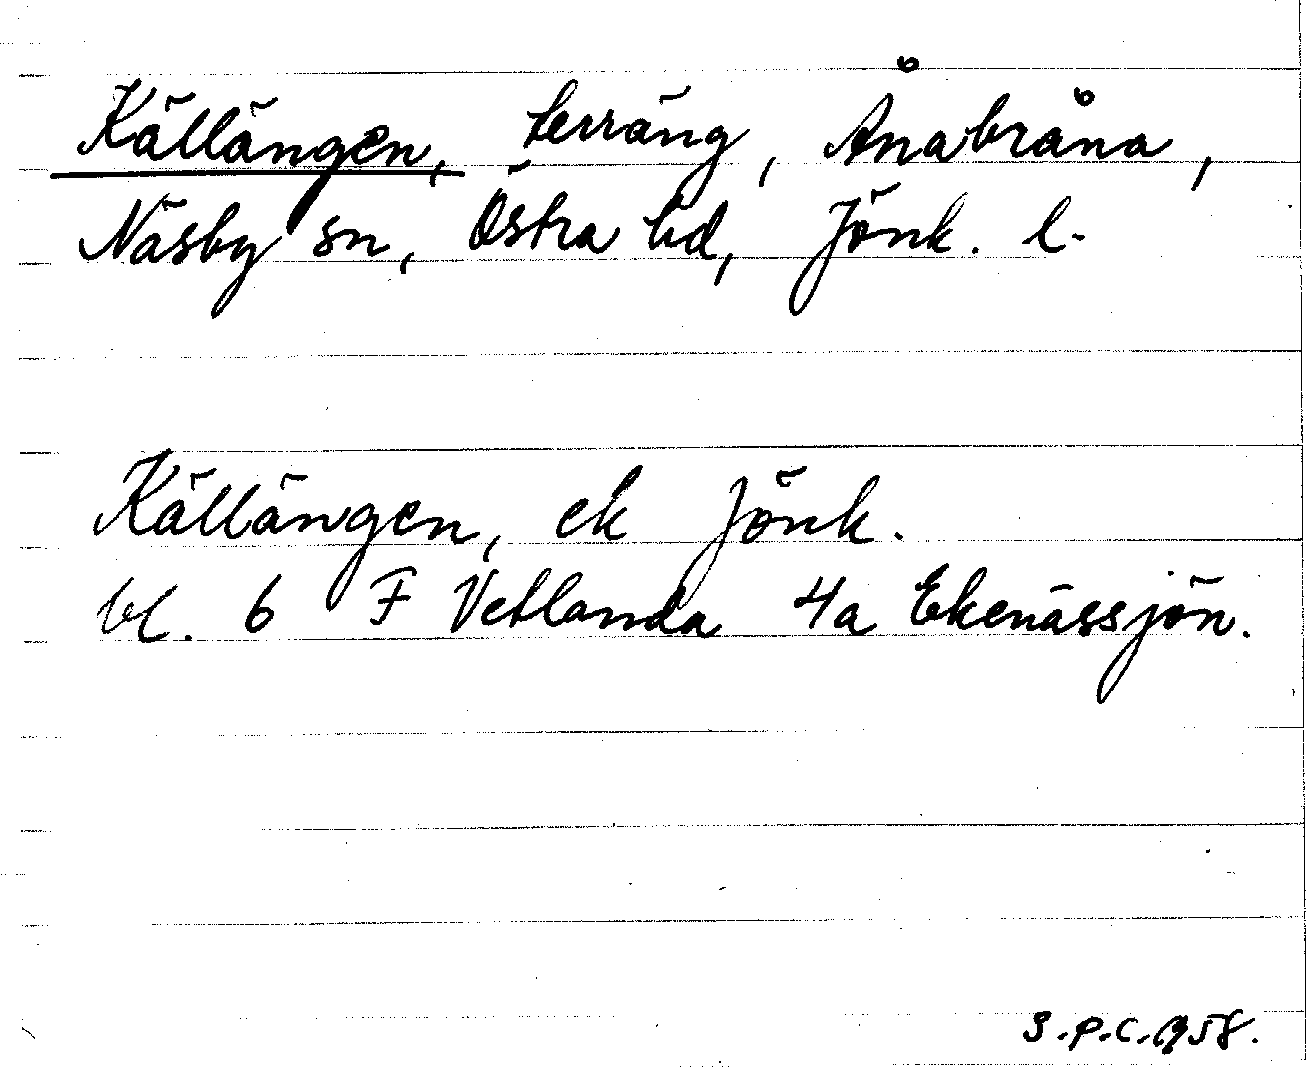 Källängen, terräng, Ånabråna,
Näsby sn, Östra hd, Jönk. l.
Källängen, ek Jönk.
bl. 6 F Vetlanda 4a Ekenässjön.
S.P.C. 1958.